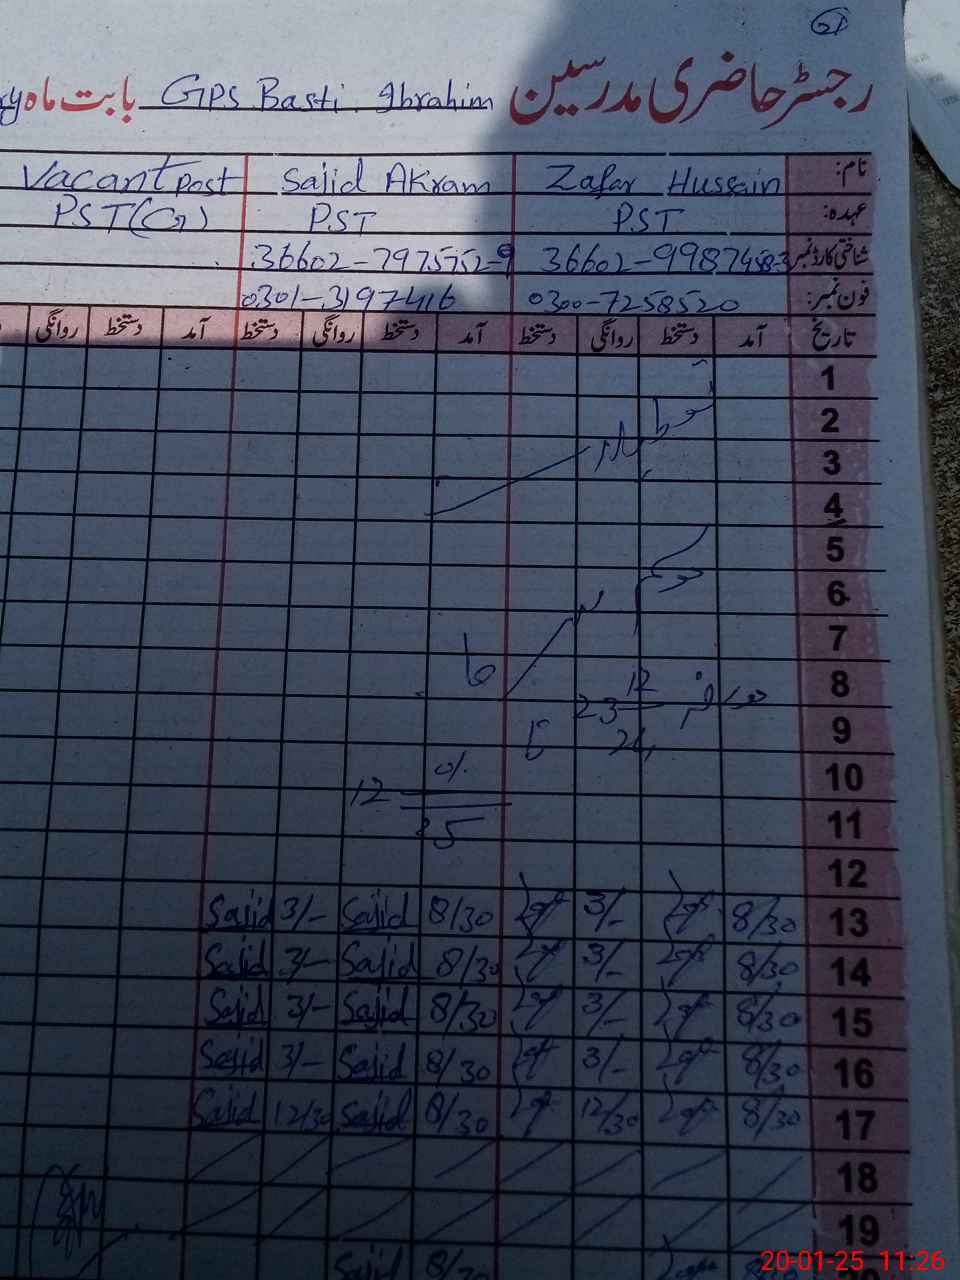 21
رجسٹر حاضری مدرسین GPS Basti Ibrahim بابت ماہ
نام: Zafar Hussain Sajid Akram Vacant Post
عہدہ: PST PST PST(G)
شناختی کارڈ نمبر 36602-9987458-3 36602-7975752-9
فون نمبر: 0300-7258520 0301-3197416
تاریخ آمد دستخط روانگی دستخط آمد دستخط روانگی دستخط آمد دستخط روانگی
1
2
3
4
5
6
7
8
9
10
11
12
13 8/30 3/- 8/30 Sajid 3/- Sajid
14 8/30 3/- 8/30 Sajid 3/- Sajid
15 8/30 3/- 8/30 Sajid 3/- Sajid
16 8/30 3/- 8/30 Sajid 3/- Sajid
17 8/30 12/30 8/30 Sajid 12/30 Sajid
18
19
8/30 Sajid
20-01-25 11:26